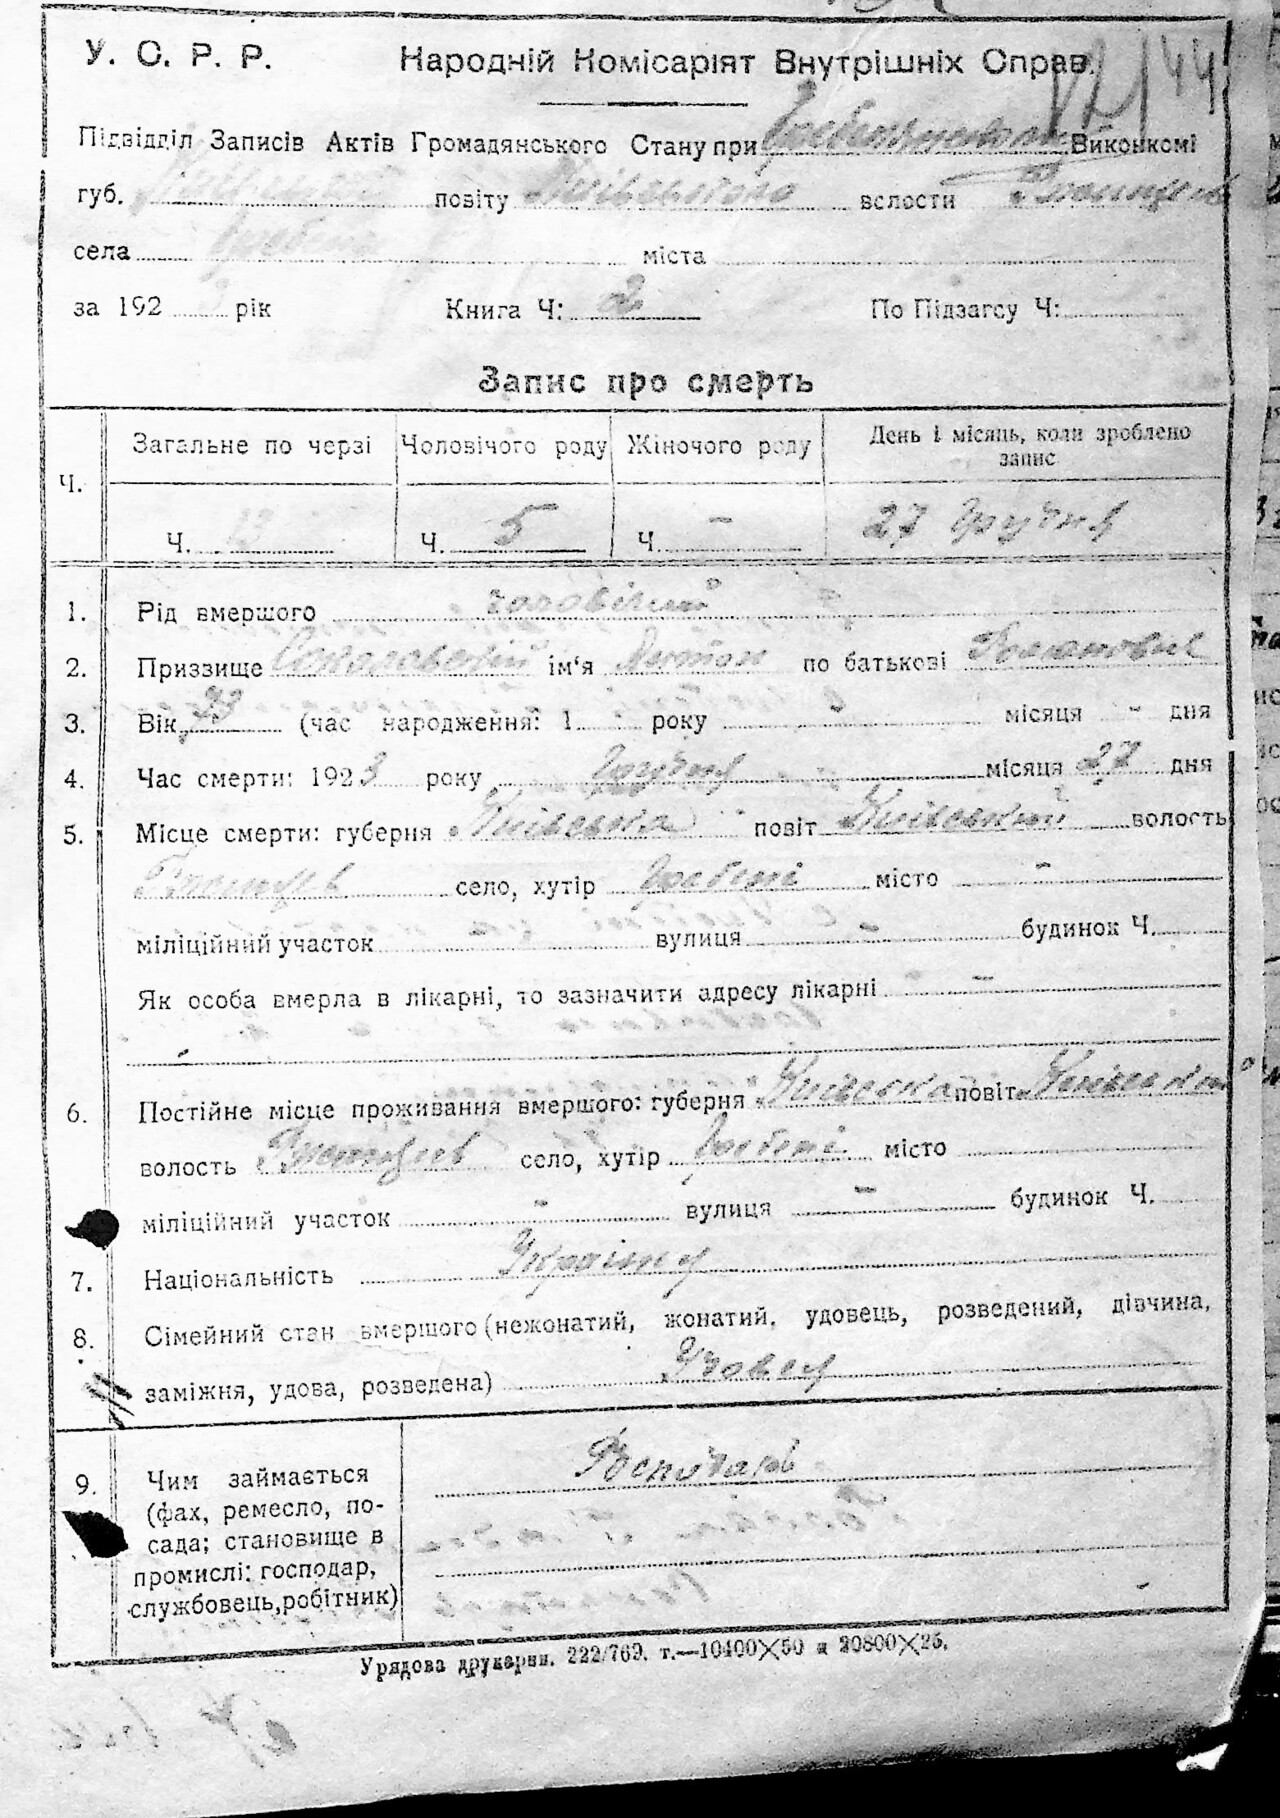 У. С. Р. Р. Народній Комісаріят Внутрішніх Справ.
Підвідділ Записів Актів Громадянського Стану при Виконкомі
губ. повіту Київського волости
села міста
за 192 3 рік Книга Ч: 2 По Підзагсу Ч:
Запис про смерть
Ч. Загальне по черзі Чоловічого роду Жіночого роду День і місяць, коли зроблено запис
Ч. 13 Ч. 5 Ч. - 27 Грудня
1. Рід вмершого чоловічий
2. Приззище Соколовский ім'я Антон по батькові
3. Вік (час народження: 1 року місяця - дня
4. Час смерти: 1923 року Грудня місяця 27 дня
5. Місце смерти: губерня Київська повіт Київський волость
село, хутір Гребені місто -
міліційний участок вулиця - будинок Ч.
Як особа вмерла в лікарні, то зазначити адресу лікарні - -
6. Постійне місце проживання вмершого: губерня Київська повіт Київський
волость село, хутір Гребені місто
міліційний участок - вулиця - будинок Ч.
7. Національність
8. Сімейний стан вмершого (нежонатий, жонатий, удовець, розведений, дівчина,
заміжня, удова, розведена) Удовец
9. Чим займається
(фах, ремесло, по-
сада; становище в
промислі: господар,
службовець, робітник)
Господарь
Урядова друкарня. 222/769. т.—10400×50 и 20800×25.